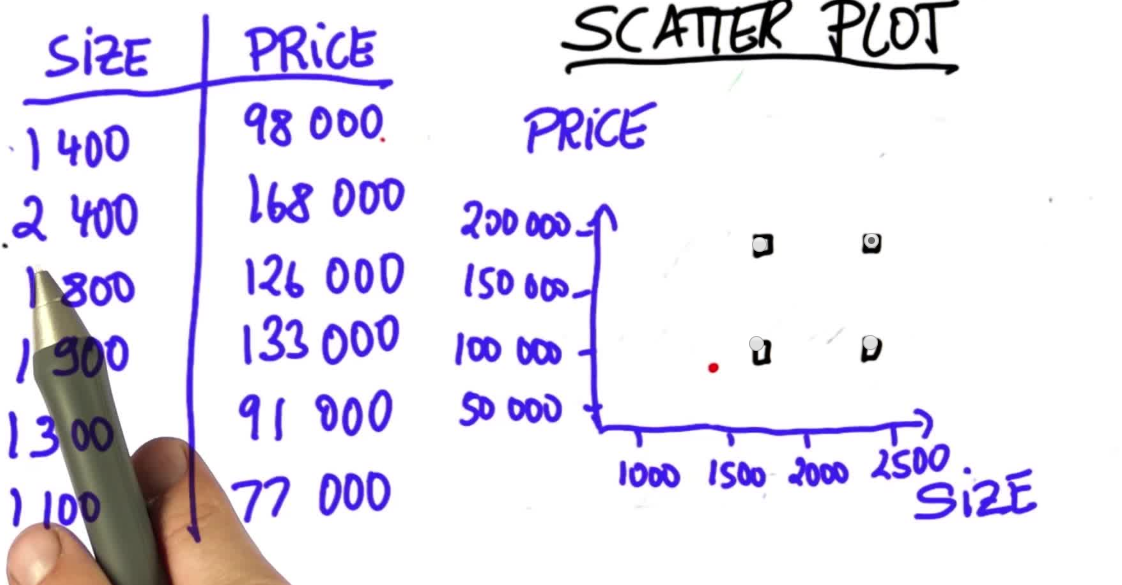 SCATTER PLOT
SiZE PRiCE
1 400 98 000
2 400 168 000
1 800 126 000
1 900 133 000
1 300 91 000
1 100 77 000
PRiCE
200 000
150 000
100 000
50 000
1000 1500 2000 2500
SiZE